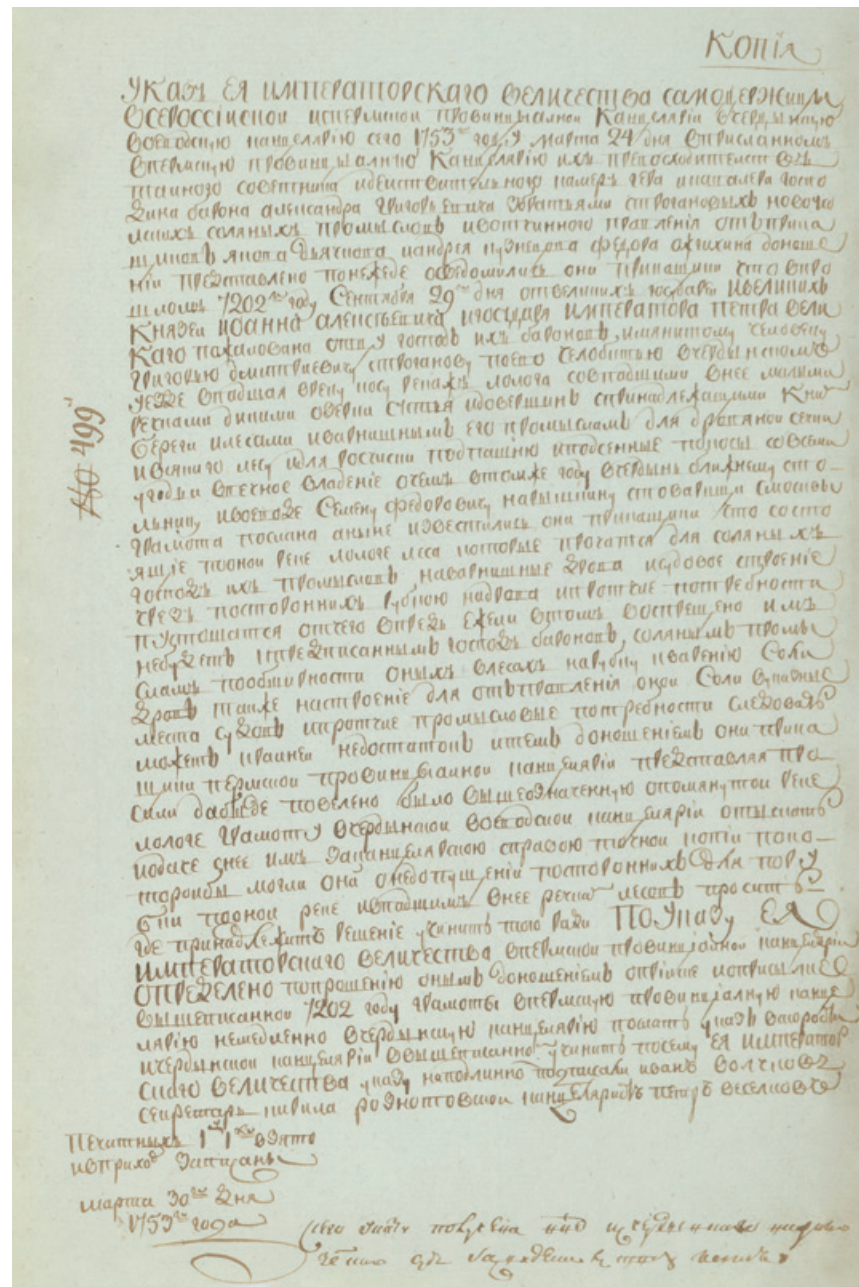 Копія
УКАЗЪ ЕЯ ИМПЕРАТОРСКАГО ВЕЛИЧЕСТВА САМОДЕРЖИЦЫ
ВСЕРОССІИСКОИ исПермскои провинцыалнои Канцеляріи вчердынскую
воеводскую канцелярію сего 1753 году марта 24 дня вприсланномъ
впермскую провинцыалную Канцелярію ихъ превосходителствъ
таиного советника идеиствителного камеръ гера икавалера госпо
дина барона александра Григорьевича збратьями строгановыхъ новоусо
лскихъ соляныхъ промысловъ ивотчинного правленія отъприка
щиковъ якова дьяконова иандрея кузнецова федора ожгихина доноше
ніи представлено понежеде осведомились они прикащики что впро
шломъ 7202 году Сентября 29 дня отвеликихъ государеи ивеликихъ
Князеи иоанна алексѣевича игосударя императора петра вели
Каго пожалована отцу господъ ихъ бароновъ, имянитому человеку
Григорью дмитриевичу строганову поево челобитью вчердынскомъ
уезде впадшая вреку косу река лолога совпадшими внее малыми
речками дикими озерки систья идовершинъ спринадлежащими Книмъ
береги илесами кварнишнымъ его промысламъ для дровяной сечки
ивсякого лесу идля росчисти подпашню иподсенные покосы совсеми
угодьи ввечное владение очемъ втомже году вчердынь ближнему сто-
льнику ивоеводе Семену федоровичу нарышкину стоварищи смосквы
грамота послана аныне известились они прикащики что состо
ящіе потои реке лологе леса которые прочатся для соляныхъ
господъ ихъ промысловъ, наварнишные дрова исудовое строеніе
чрезъ постороннихъ рубкою надрова ипротчие потребности
пустошатся отчего впредь ежели втомъ воспрещено имъ
небудетъ тпредписаннымъ господъ бароновъ, солянымъ промы
сламъ пообширности оныхъ влесахъ нарубку кварению Соли
дровъ также настроение для отъправленія онои Соли вуказные
места судовъ ипротчие промысловые потребности следовать
можетъ краинеи недостатокъ итемъ доношеніемъ они прика
щики пермскои провинцыалнои канцеляріи представляя про
сили дабыде повелено было вышеозначенную опомянутои реке
лологе грамоту вчердынскои воеводскои канцеляріи отыскать
иодаче знее имъ заканцелярскою справою точнои копіи пока-
торои бы могли они онедопущеніи постороннихъ для пору
бки потои реке ивпадшимъ внее речкамъ лесовъ просить
где принадлежитъ решение учинить тою ради ПОУказу ЕЯ
ИМПЕРАТОРСКАГО ВЕЛИЧЕСТВА впермскои провинціалнои канцеляріи
ОПРЕДЕЛЕНО попрошению онымъ доношеніемъ
вышеписаннои 7202 году грамоты впермскую провинціалную канце
лярію немедленно вчердынскую канцелярію послать указъ
ичердынскои канцеляріи овышеписанномъ учинить посему ЕЯ ИМПЕРАТОР
скаго ВЕЛИЧЕСТВА указу наподлинномъ подписали иванъ волчковъ
секретарь кирила канцеляристъ петръ веселковъ
№ 499
Печатныхъ взято
ивприход записаны
марта 30 дня
1753 года